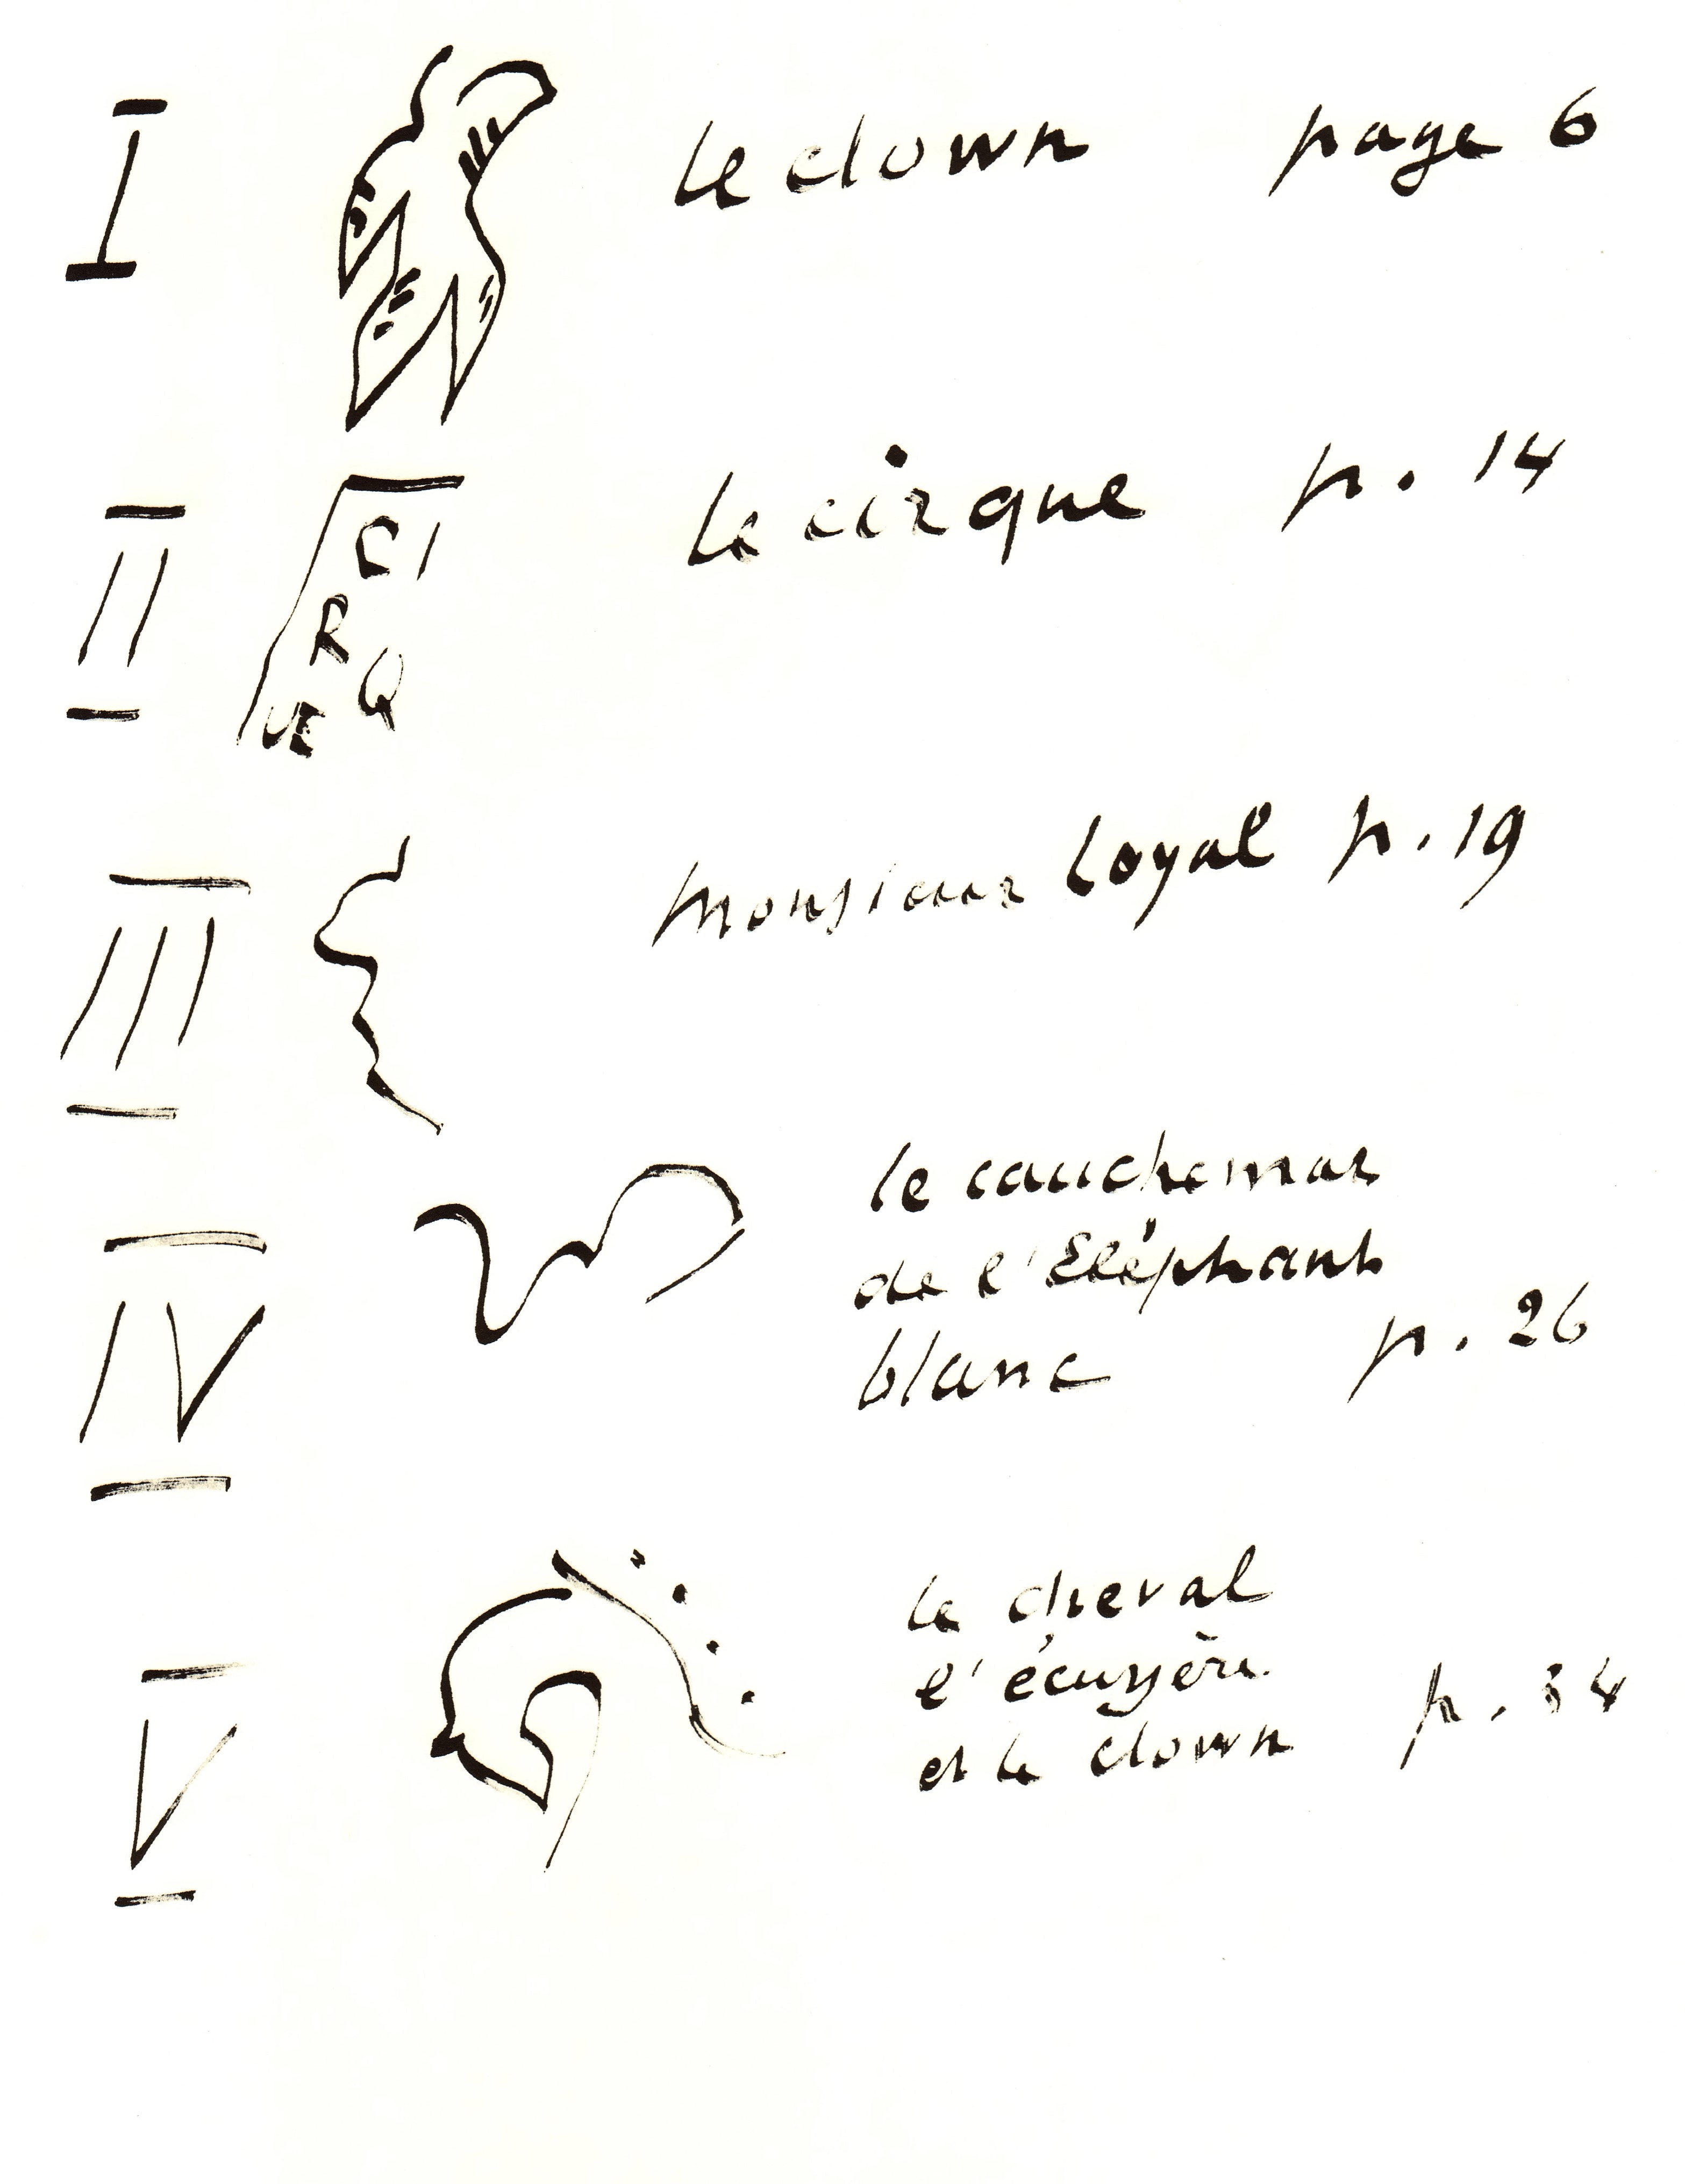 I le clown page 6
II le cirque p. 14
CI
R
Q
UE
III Monsieur Loyal p. 19
IV le cauchemar
de l'Eléphant
blanc p. 26
V le cheval
l'écuyère
et le clown p. 34